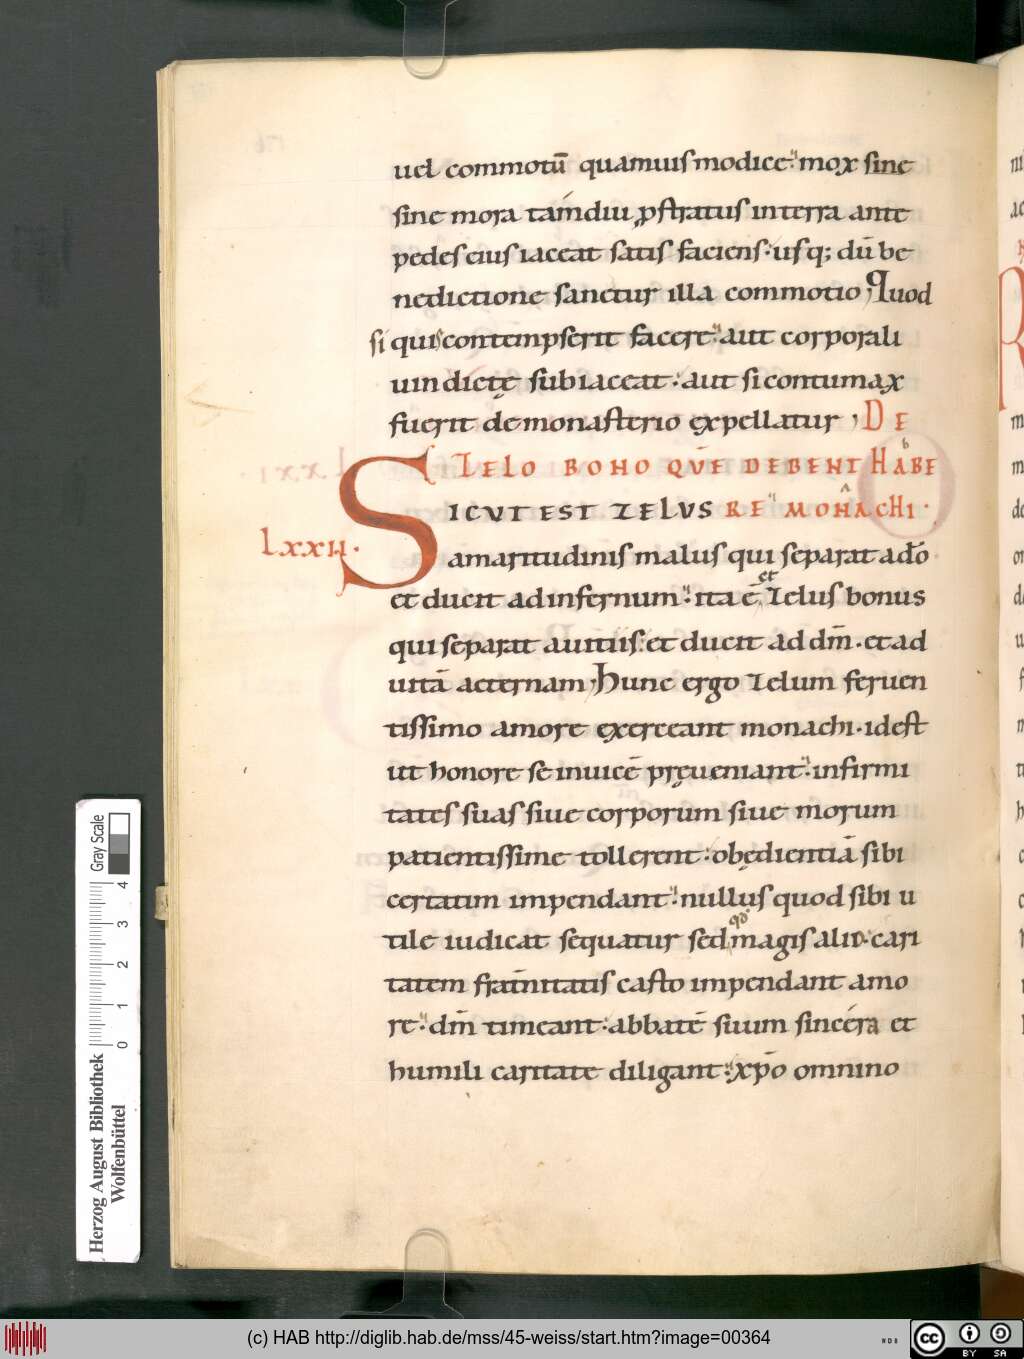 uel commotū quamuis modice: mox sine
sine mora tamdiu ꝓstratus in terra ante
pedes eius iaceat satis faciens. usq; dū be
nedictione sanetur illa commotio; Quod
si quis contempserit facere: aut corporali
uindictę subiaceat: aut si contumax
fuerit de monasterio expellatur; DE
ZELO BONO QVĒ DEBENT HABE
SICVT EST ZELVS RE MONACHI.
LXXII.
amaritudinis malus qui separat a dō
et ducit ad infernum: ita ē et zelus bonus
qui separat a uitiis: et ducit ad dm̄. et ad
uitā aeternam; Hunc ergo zelum feruen
tissimo amore exerceant monachi. id est
ut honore se inuicē pręueniant: infirmi
tates suas siue corporum siue morum
patientissime tollerent: obędientiā sibi
certatim impendant: nullus quod sibi u
tile iudicat sequatur sed qđ magis alii: cari
tatem frat̄nitatis casto impendant amo
re: dm̄ timeant: abbatē suum sincera et
humili caritate diligant: xp̄o omnino
Gray Scale
0 1 2 3 4
Herzog August Bibliothek
Wolfenbüttel
(c) HAB http://diglib.hab.de/mss/45-weiss/start.htm?image=00364
WDB
cc BY SA